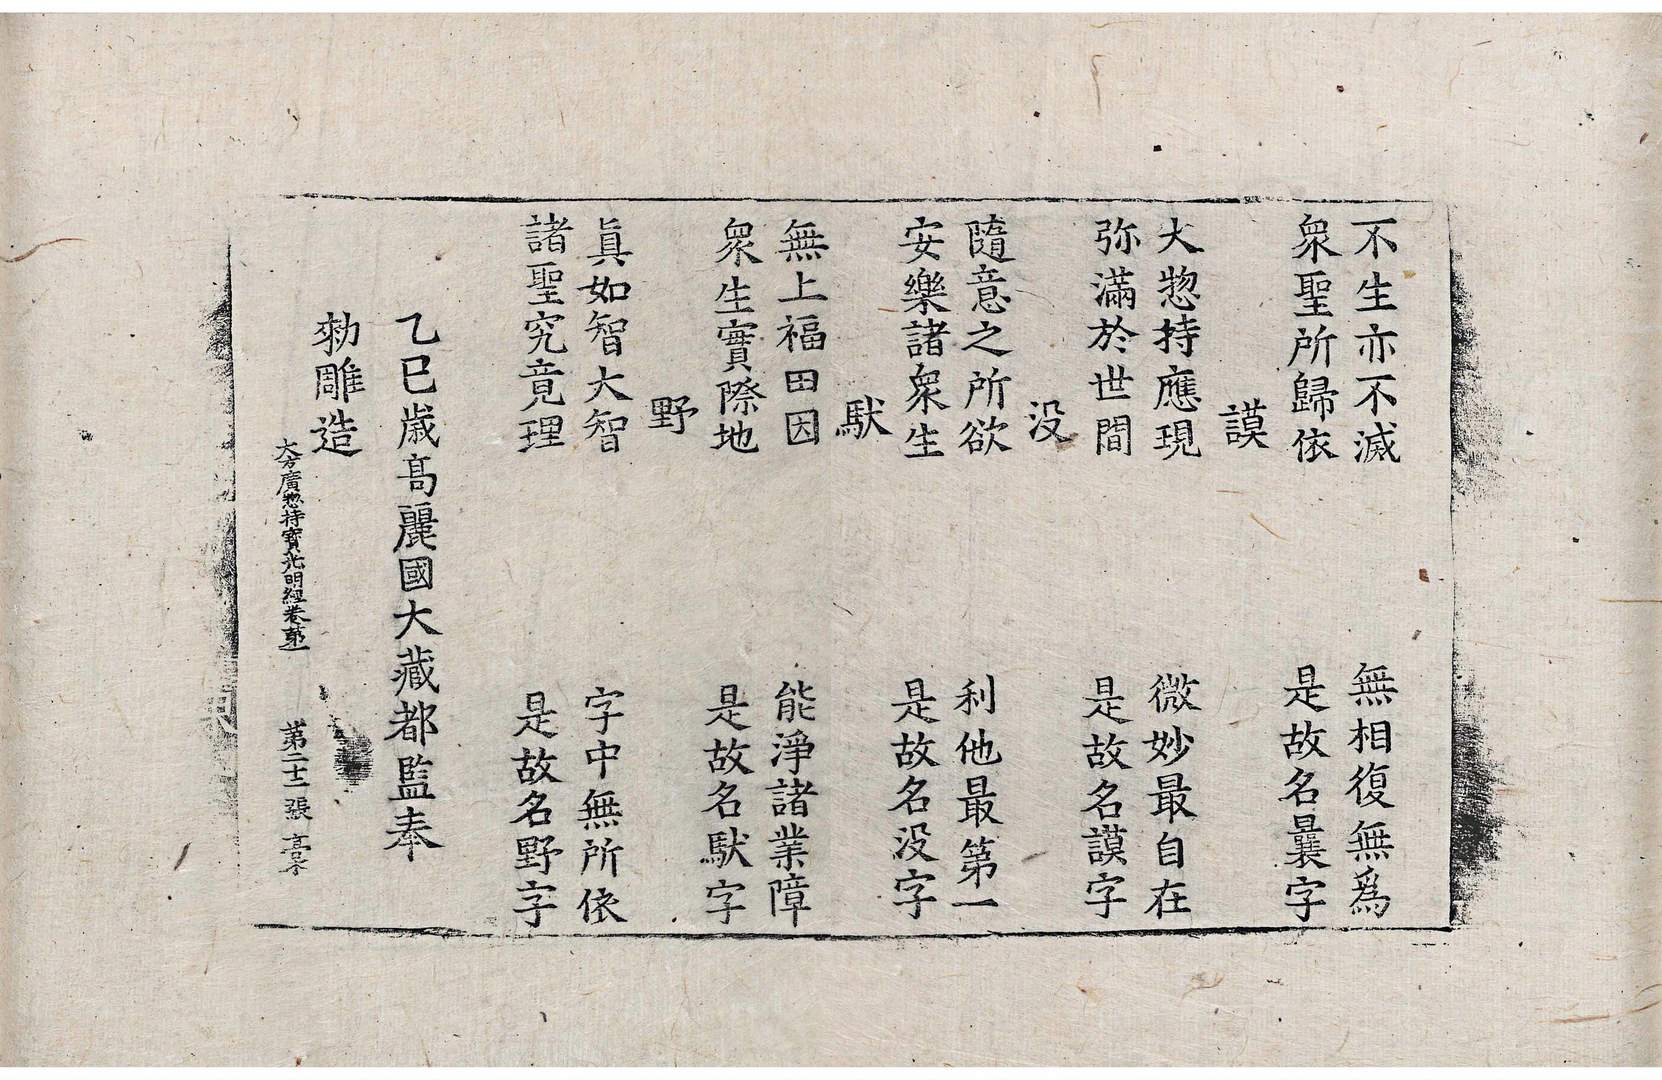 不生亦不滅　無相復無爲
衆聖所歸依　是故名曩字
謨
大惣持應現　微妙最自在
弥滿於世間　是故名謨字
没
隨意之所欲　利他最第一
安樂諸衆生　是故名没字
馱
無上福田因　能淨諸業障
衆生實際地　是故名馱字
野
眞如智大智　字中無所依
諸聖究竟理　是故名野字
乙巳歲高麗國大藏都監奉
勑雕造
大方廣惣持寶光明經卷第一　第二十二張